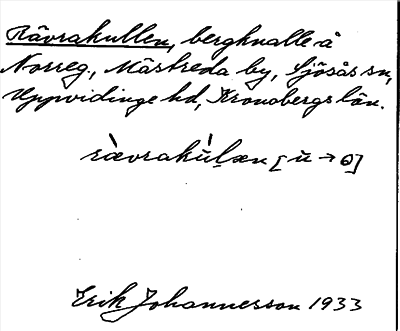 Rävrakullen, bergknalle å
Norreg., Mästreda by, Sjösås sn,
Uppvidinge hd, Kronobergs län.
rævrakùlæn [ù → ɷ]
Erik Johannesson 1933